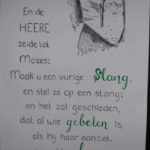 En de
HEERE
zeide tot
Mozes:
Maak u een vurige slang,
en stel ze op een stang;
en het zal geschieden,
dat al wie gebeten is,
als hij haar aanziet,